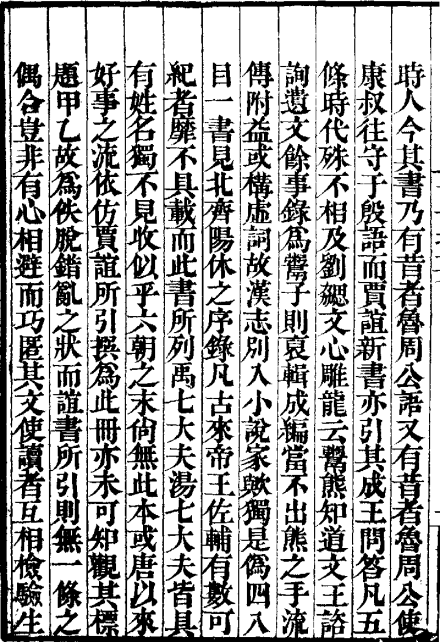 時人今其書乃有昔者魯周公語又有昔者魯周公使
康叔往守于殷語而賈誼新書亦引其成王問答凡五
條時代殊不相及劉勰文心雕龍云鬻熊知道文王諮
詢遺文餘事錄爲鬻子則裒輯成編當不出熊之手流
傳附益或構虛詞故漢志別入小說家歟獨是偽四八
目一書見北齊陽休之序錄凡古來帝王佐輔有數可
紀者靡不具載而此書所列禹七大夫湯七大夫皆具
有姓名獨不見收似乎六朝之末尚無此本或唐以來
好事之流依仿賈誼所引撰爲此冊亦未可知觀其標
題甲乙故爲佚脫錯亂之狀而誼書所引則無一條之
偶合豈非有心相避而巧匿其文使讀者互相檢驗生